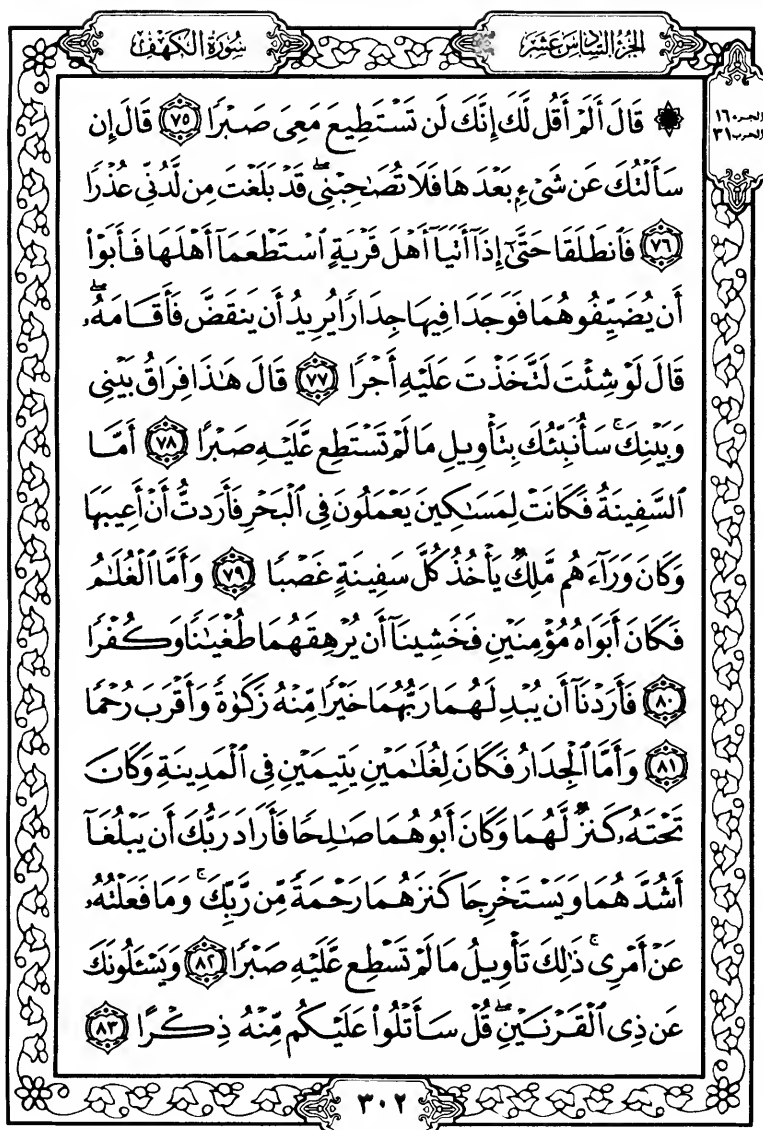 سُورَةُ الكَهْفِ
الجُزْءُ السَّادِسَ عَشَرَ
الجزء ١٦
الحزب ٣١
۞ قَالَ أَلَمْ أَقُل لَّكَ إِنَّكَ لَن تَسْتَطِيعَ مَعِىَ صَبْرًا ٧٥ قَالَ إِن
سَأَلْتُكَ عَن شَىْءٍۭ بَعْدَهَا فَلَا تُصَٰحِبْنِى ۖ قَدْ بَلَغْتَ مِن لَّدُنِّى عُذْرًا
٧٦ فَٱنطَلَقَا حَتَّىٰٓ إِذَآ أَتَيَآ أَهْلَ قَرْيَةٍ ٱسْتَطْعَمَآ أَهْلَهَا فَأَبَوْا۟
أَن يُضَيِّفُوهُمَا فَوَجَدَا فِيهَا جِدَارًا يُرِيدُ أَن يَنقَضَّ فَأَقَامَهُۥ ۖ
قَالَ لَوْ شِئْتَ لَتَّخَذْتَ عَلَيْهِ أَجْرًا ٧٧ قَالَ هَٰذَا فِرَاقُ بَيْنِى
وَبَيْنِكَ ۚ سَأُنَبِّئُكَ بِتَأْوِيلِ مَا لَمْ تَسْتَطِع عَّلَيْهِ صَبْرًا ٧٨ أَمَّا
ٱلسَّفِينَةُ فَكَانَتْ لِمَسَٰكِينَ يَعْمَلُونَ فِى ٱلْبَحْرِ فَأَرَدتُّ أَنْ أَعِيبَهَا
وَكَانَ وَرَآءَهُم مَّلِكٌ يَأْخُذُ كُلَّ سَفِينَةٍ غَصْبًا ٧٩ وَأَمَّا ٱلْغُلَٰمُ
فَكَانَ أَبَوَاهُ مُؤْمِنَيْنِ فَخَشِينَآ أَن يُرْهِقَهُمَا طُغْيَٰنًا وَكُفْرًا
٨٠ فَأَرَدْنَآ أَن يُبْدِلَهُمَا رَبُّهُمَا خَيْرًا مِّنْهُ زَكَوٰةً وَأَقْرَبَ رُحْمًا
٨١ وَأَمَّا ٱلْجِدَارُ فَكَانَ لِغُلَٰمَيْنِ يَتِيمَيْنِ فِى ٱلْمَدِينَةِ وَكَانَ
تَحْتَهُۥ كَنزٌ لَّهُمَا وَكَانَ أَبُوهُمَا صَٰلِحًا فَأَرَادَ رَبُّكَ أَن يَبْلُغَآ
أَشُدَّهُمَا وَيَسْتَخْرِجَا كَنزَهُمَا رَحْمَةً مِّن رَّبِّكَ ۚ وَمَا فَعَلْتُهُۥ
عَنْ أَمْرِى ۚ ذَٰلِكَ تَأْوِيلُ مَا لَمْ تَسْطِع عَّلَيْهِ صَبْرًا ٨٢ وَيَسْـَٔلُونَكَ
عَن ذِى ٱلْقَرْنَيْنِ ۖ قُلْ سَأَتْلُوا۟ عَلَيْكُم مِّنْهُ ذِكْرًا ٨٣
٣٠٢